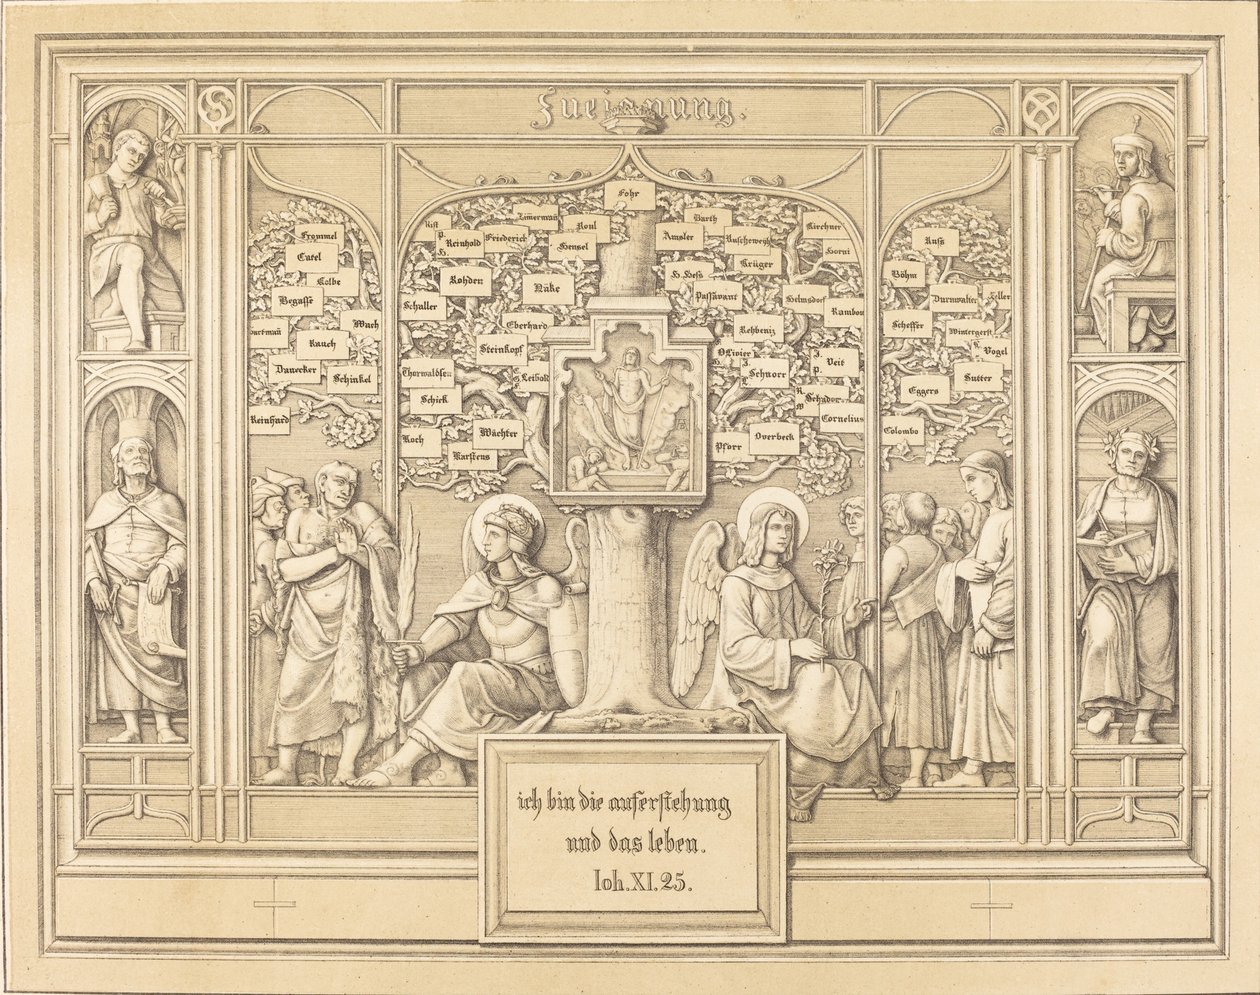 Zueignung.
Fohr
Rist
Zimerman
Koul
P.
Reinhold
H.
Friederich
Hensel
Rohden
Näke
Schaller
Eberhard
Steinkopf
Thorwaldsen
G. Leibold
Schick
Koch
Wächter
Karstens
Barth
Kirchner
Amsler
Ruscheweyh
Horni
Krüger
H. Heß
Passavant
Helmsdorf
Rambou
Rehbeniz
Olivier
J.
Schnorr
L.
J.
Veit
P.
R.
Schadow
W.
Cornelius
Pforr
Overbeck
Frommel
Catel
Kolbe
Begasse
Wach
Rauch
Danecker
Schinkel
Reinhard
Ruß
Böhm
Durnwalter
Scheffer
Wintergerst
Vogel
Eggers
Sutter
Colombo
ich bin die auferstehung
und das leben.
Ioh. XI. 25.